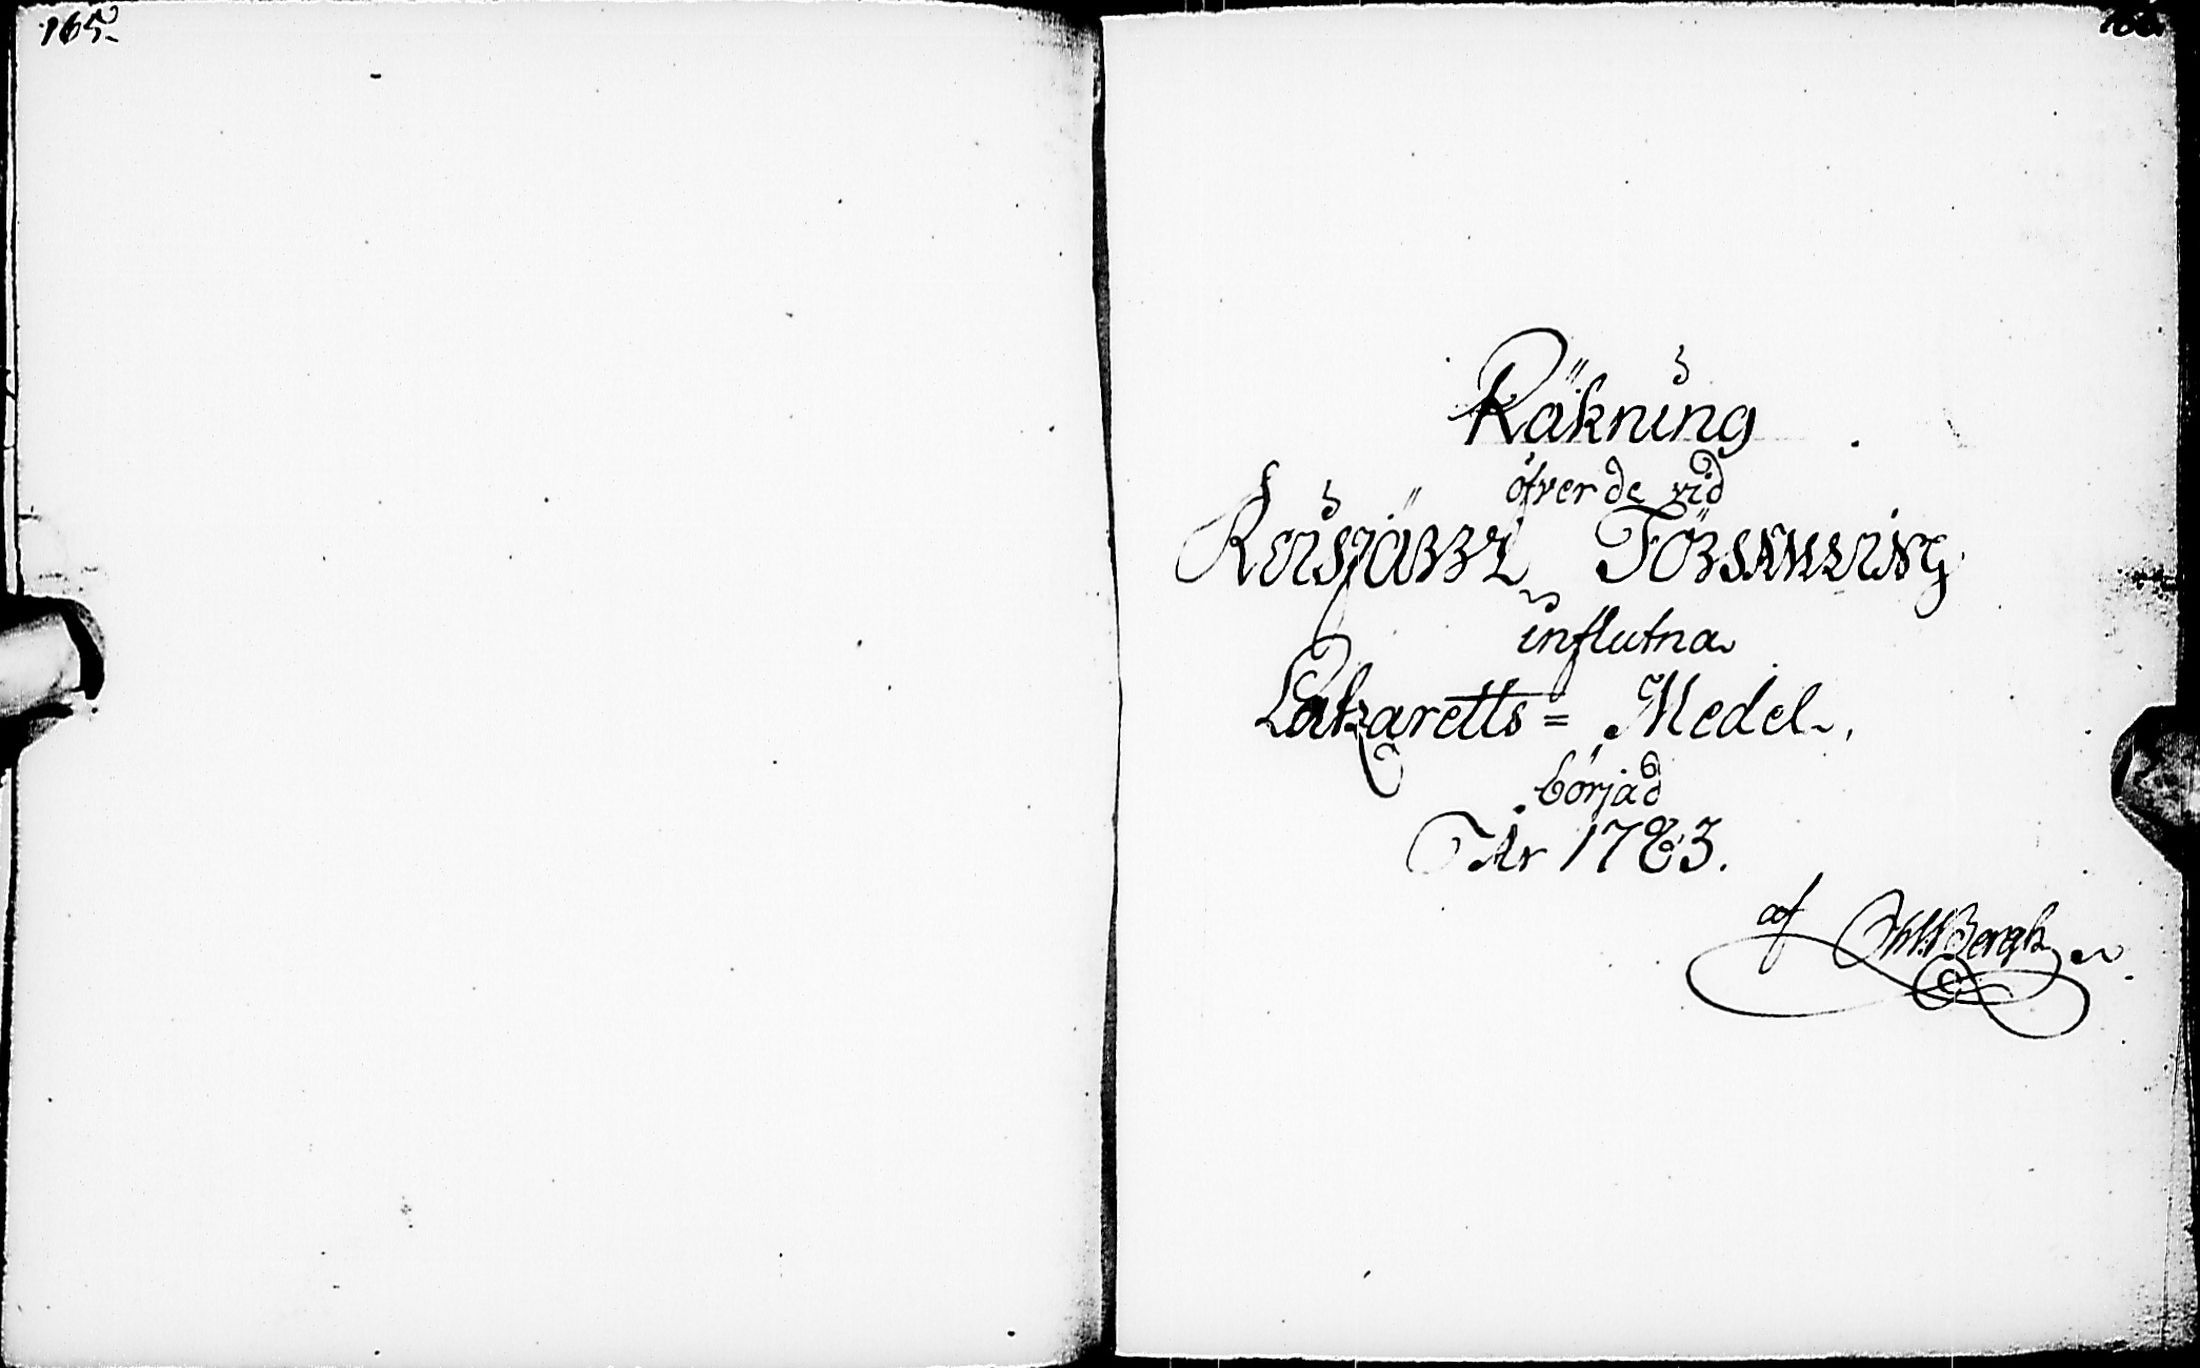 165
166
Räkning
öfver de vid
Kuusjärvi Församling
influtna
Lazaretts = Medel,
börjad
År 1783.
af